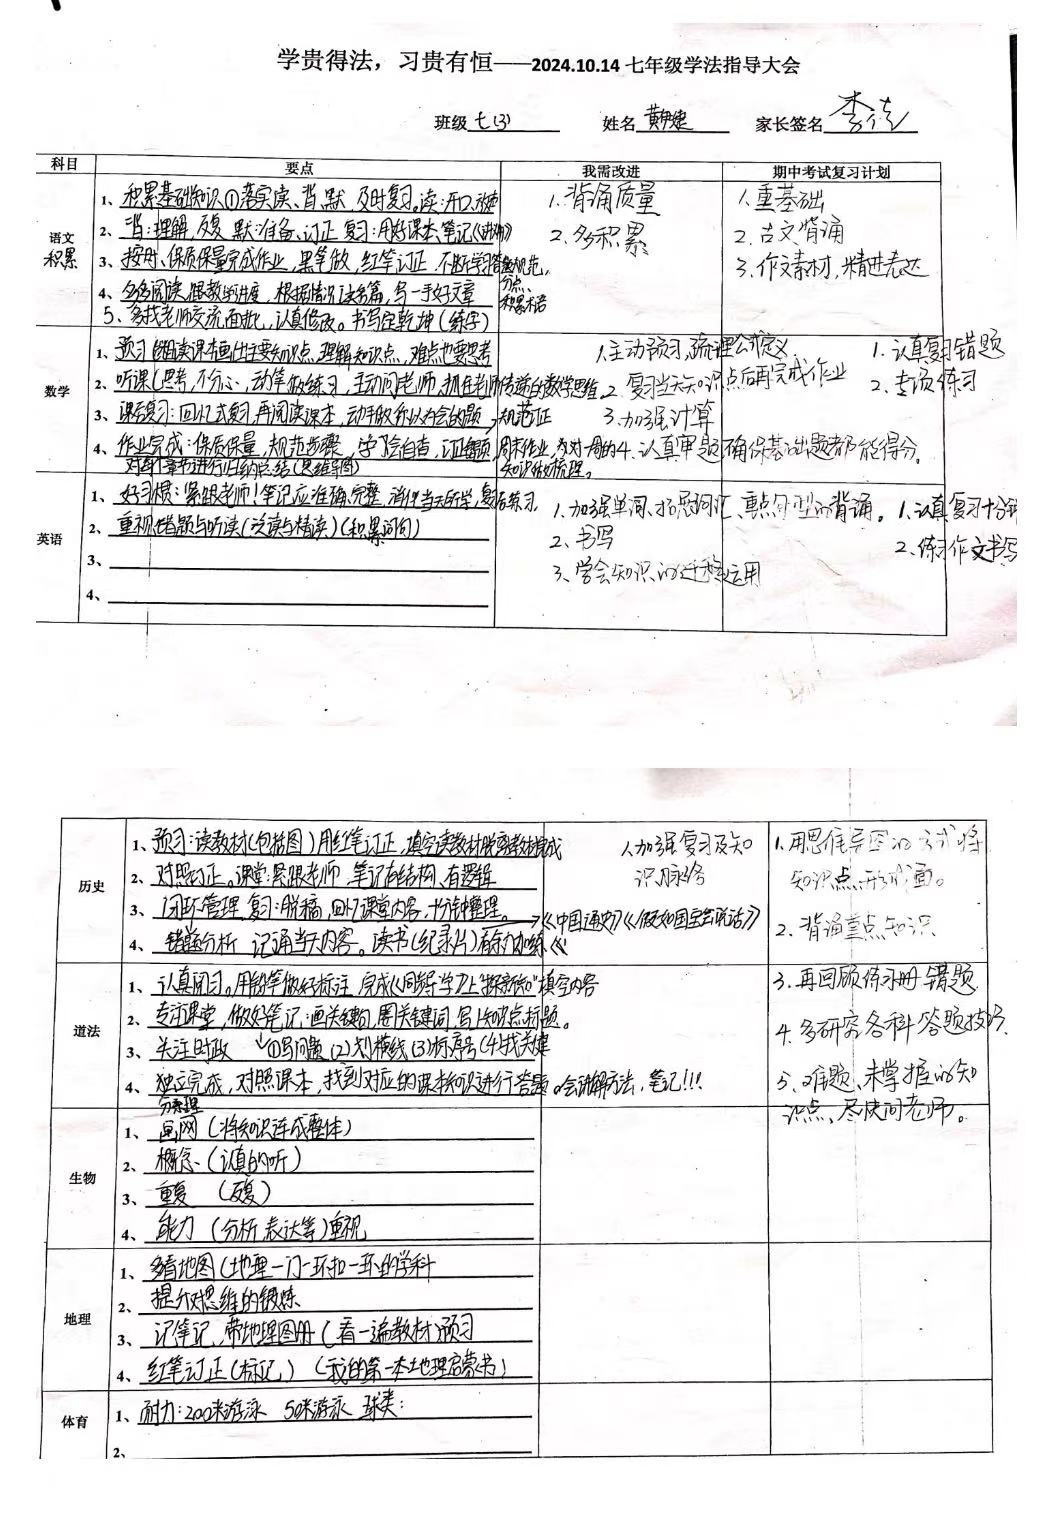 学贵得法，习贵有恒——2024.10.14 七年级学法指导大会
班级 七(3) 姓名 黄 家长签名 李
科目 要点 我需改进 期中考试复习计划
语文
积累
1、积累基础知识①落实读、背、默 及时复习。读:开口、
2、背:理解,反复 默:准备、订正 复习:用好课本、笔记
3、按时、保质保量完成作业,黑笔做,红笔订正,不断学习答题规范,
分点、
积累术语
4、多多阅读,跟教学进度,根据情况读名篇,写一手好文章
5、多找老师交流,面批,认真修改。书写定乾坤(练字)
1.背诵质量
2.多积累
1.重基础
2.古文背诵
3.作文素材,精进表达
数学
1、预习(粗读课本画出主要知识点,理解知识点,难点也要思考
2、听课(思考,不分心,动笔做练习,主动问老师,抓住老师传递的数学思维
3、课后复习:回忆式复习,再阅读课本,动手做所以为会的题
4、作业完成:保质保量,规范步骤,学会自查,订正错题
对每个章节进行归纳总结(思维导图)
规范订正
周末作业,为对一周的
知识做梳理。
1.主动预习,疏理公式定义
2.复习当天知识点后再完成作业
3.加强计算
4.认真审题确保基础题都能得分。
1.认真复习错题
2.专项练习
英语
1、好习惯:紧跟老师!笔记应准确、完整,消化当天所学,复习后练习
2、重视错题与听读(泛读与精读)(积累词句)
3、
4、
1.加强单词,拓展词汇、重点句型的背诵。
2、书写
3、学会知识的迁移运用
1.认真复习十分钟
2.练习作文书写
历史
1、预习:读教材(包括图)用红笔订正,填空读教材脱离教材完成
2、对照订正。课堂:紧跟老师,笔记有结构、有逻辑
3、闭环管理 复习:脱稿,回忆课堂内容,十分钟整理。→《中国通史》《假如国宝会说话》
4、错题分析 记诵当天内容。读书(纪录片)
1、加强复习及知
识脉络
1.用思维导图的方式将
知识点形成面。
2.背诵重点知识
道法
1、认真预习。用铅笔做好标注,完成《同步导学》上“探新知”填空内容
2、专注课堂,做好笔记:画关键句,圈关键词,写上知识点标题。
3、关注时政 ↓①写问题(2)划横线(3)标序号(4)找关键
4、独立完成,对照课本,找到对应的课本知识进行答题。会讲解方法,笔记!!!
3.再回顾练习册错题
4.多研究各科答题技巧
5.难题、未掌握的知
识点,尽快问老师。
生物
1、画网(将知识连成整体)
2、概念(认真的听)
3、重复 (反复)
4、能力 (分析,表达等)重视
地理
1、多看地图(地理一门一环扣一环的学科
2、提升对思维的锻炼
3、记笔记,带地理图册(看一遍教材)预习
4、红笔订正(标记) (我的第一本地理启蒙书)
体育
1、耐力:200米游泳 50米游泳 球类:
2、